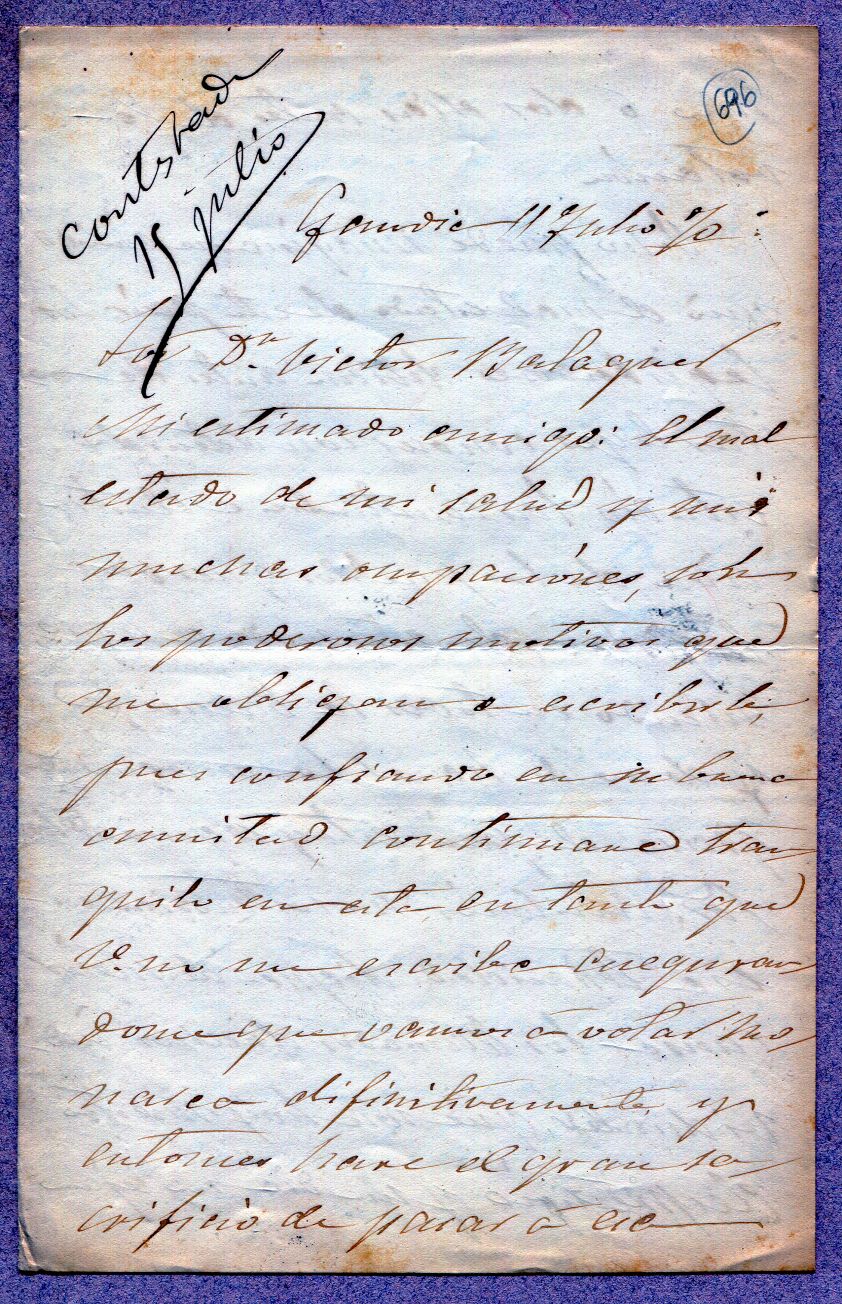 696
Contstada
15 julio
Gandia 11 Julio 70
Sor. Dn. Victor Balaguer
Mi estimado amigo: El mal
estado de mi salud y mis
muchas ocupaciónes, son
los poderosos motivos que
me obligan a escribirle,
pues confiando en su buena
amistad continuare tran
quilo en esta, en tanto que
V. no me escriba aseguran
dome que vamos á votar mo
narca difinitivamente y
entonces hare el gran sa
crificio de pasar á esa